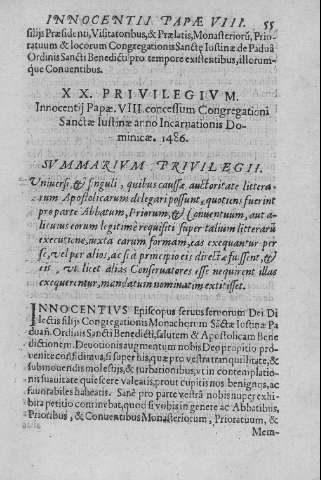 INNOCENTII PAPÆ VIII. 55
filijs Præsidenti, Visitatoribus, & Prælatis, Monasteriorũ, Prio-
ratuum & locorum Congregationis Sanctę Iustinæ de Paduâ
Ordinis Sancti Benedicti pro tempore existentibus, illorum-
que Conuentibus.
XX. PRIVILEGIVM.
Innocentij Papæ. VIII. concessum Congregationi
Sanctæ Iustinæ anno Incarnationis Do-
minicæ. 1486.
SVMMARIVM PRIVILEGII.
Uniuersi & singuli, quibus causæ auctoritate littera-
rum Apostolicarum delegari possunt, quotiens fuerint
pro parte Abbatum, Priorum, & Conuentuum, aut a-
licuius eorum legitimè requisiti super talium litterarũ
executione, iuxta earum formam, eas exequantur per
se, vel per alios, ac si à principio eis directæ fuissent, &
eis, vt licet alias Conseruatores esse nequirent illas
exequerentur, mandatum nominatim extitisset.
INNOCENTIVS Episcopus seruus seruorum Dei Di-
lectis filijs Congregationis Monachorum Sãctæ Iustinæ Pa
duañ. Ordinis Sancti Benedicti, salutem & Apostolicam Bene
dictionem. Deuotionis augmentum nobis Deo propitio pro-
uenite confidimus, si super his, quæ pro vestra tranquillitate, &
submouendis molestijs, & turbationibus, vt in contemplatio-
nis suauitate quiescere valeatis, prout cupitis nos benignos, ac
fauorabiles habeatis. Sanè pro parte vestrâ nobis nuper exhi-
bita petitio continebat, quod si vobis in genere ac Abbatibus,
Prioribus, & Conuentibus Monasteriorum, Prioratuum, &
Mem-